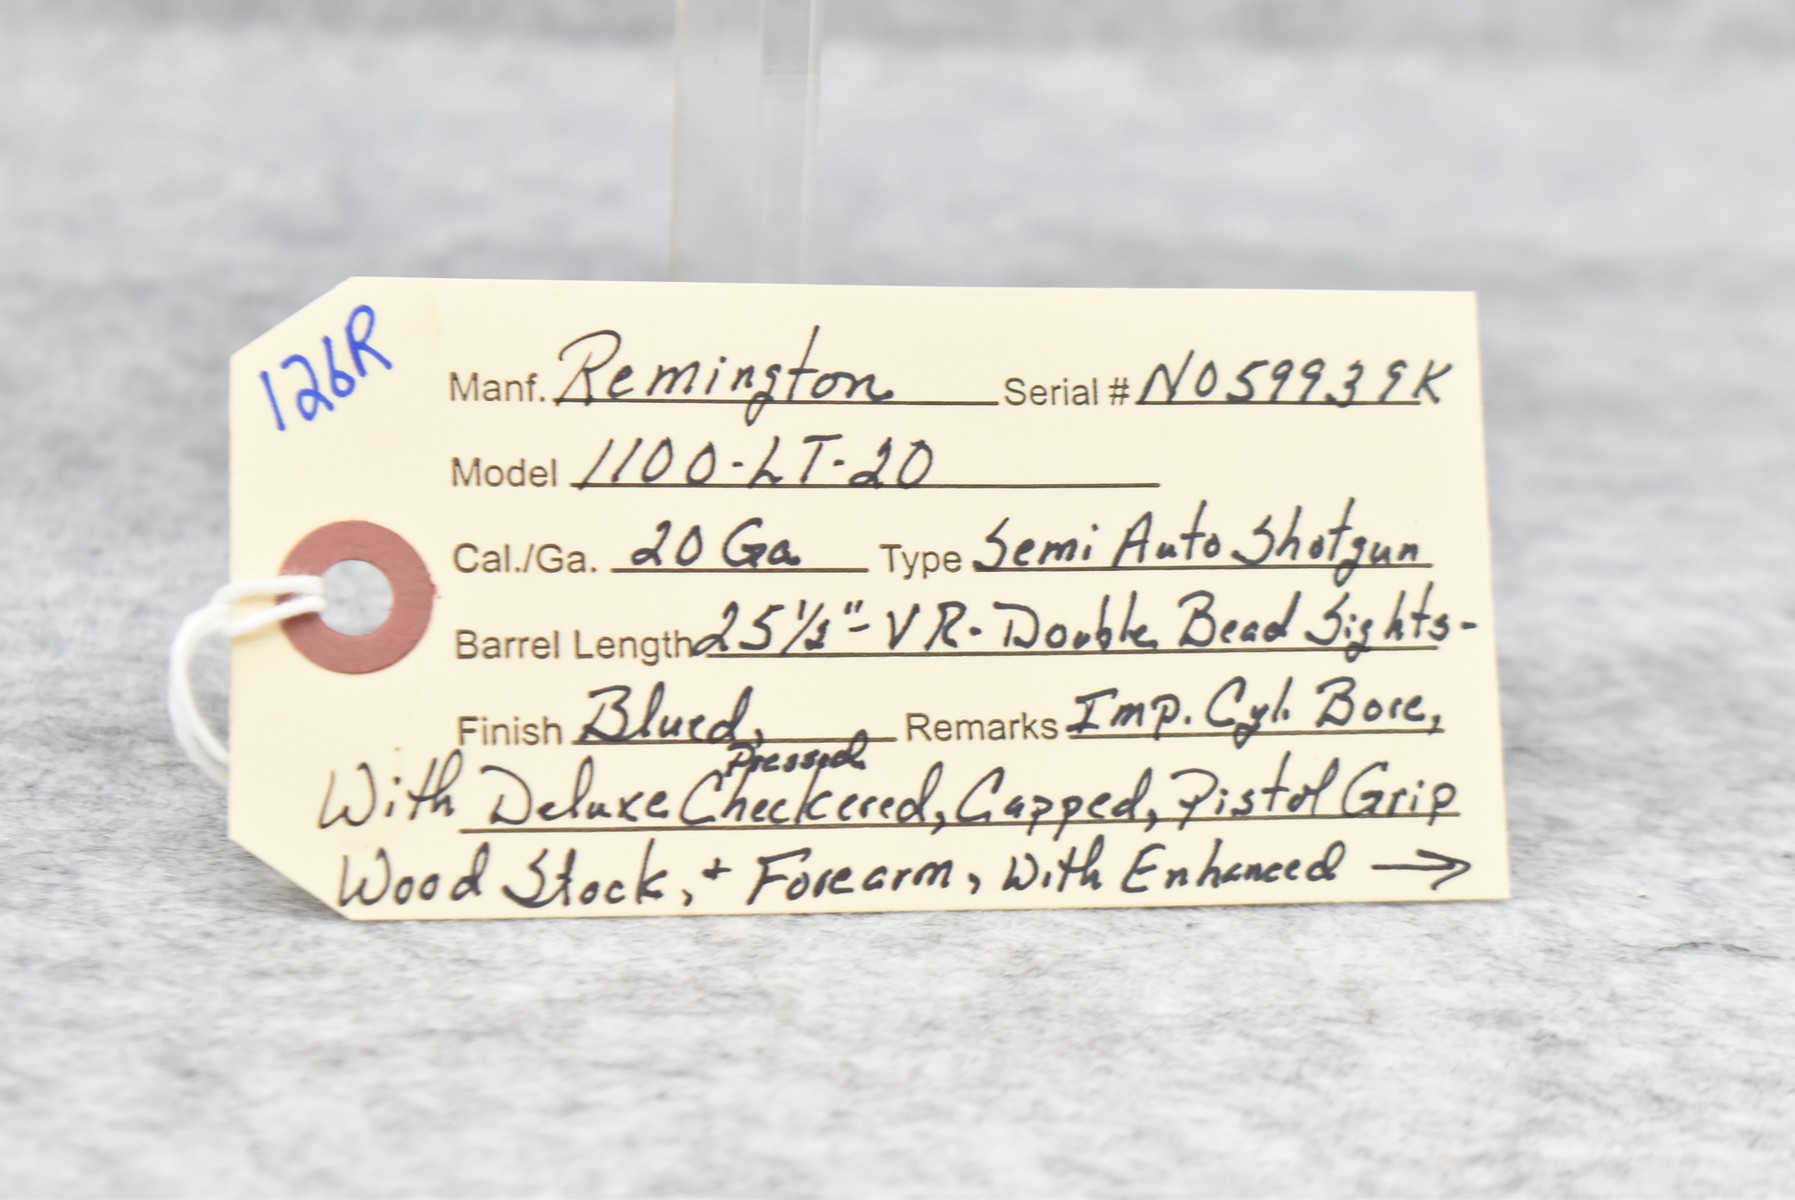 126R
Manf. Remington Serial # N059939K
Model 1100-LT-20
Cal./Ga. 20 Ga Type Semi Auto Shotgun
Barrel Length 25 1/2" - VR - Double Bead Sights -
Finish Blued, Remarks Imp. Cyl. Bore,
Pressed
With Deluxe Checkered, Capped, Pistol Grip
Wood Stock, + Forearm, With Enhanced →